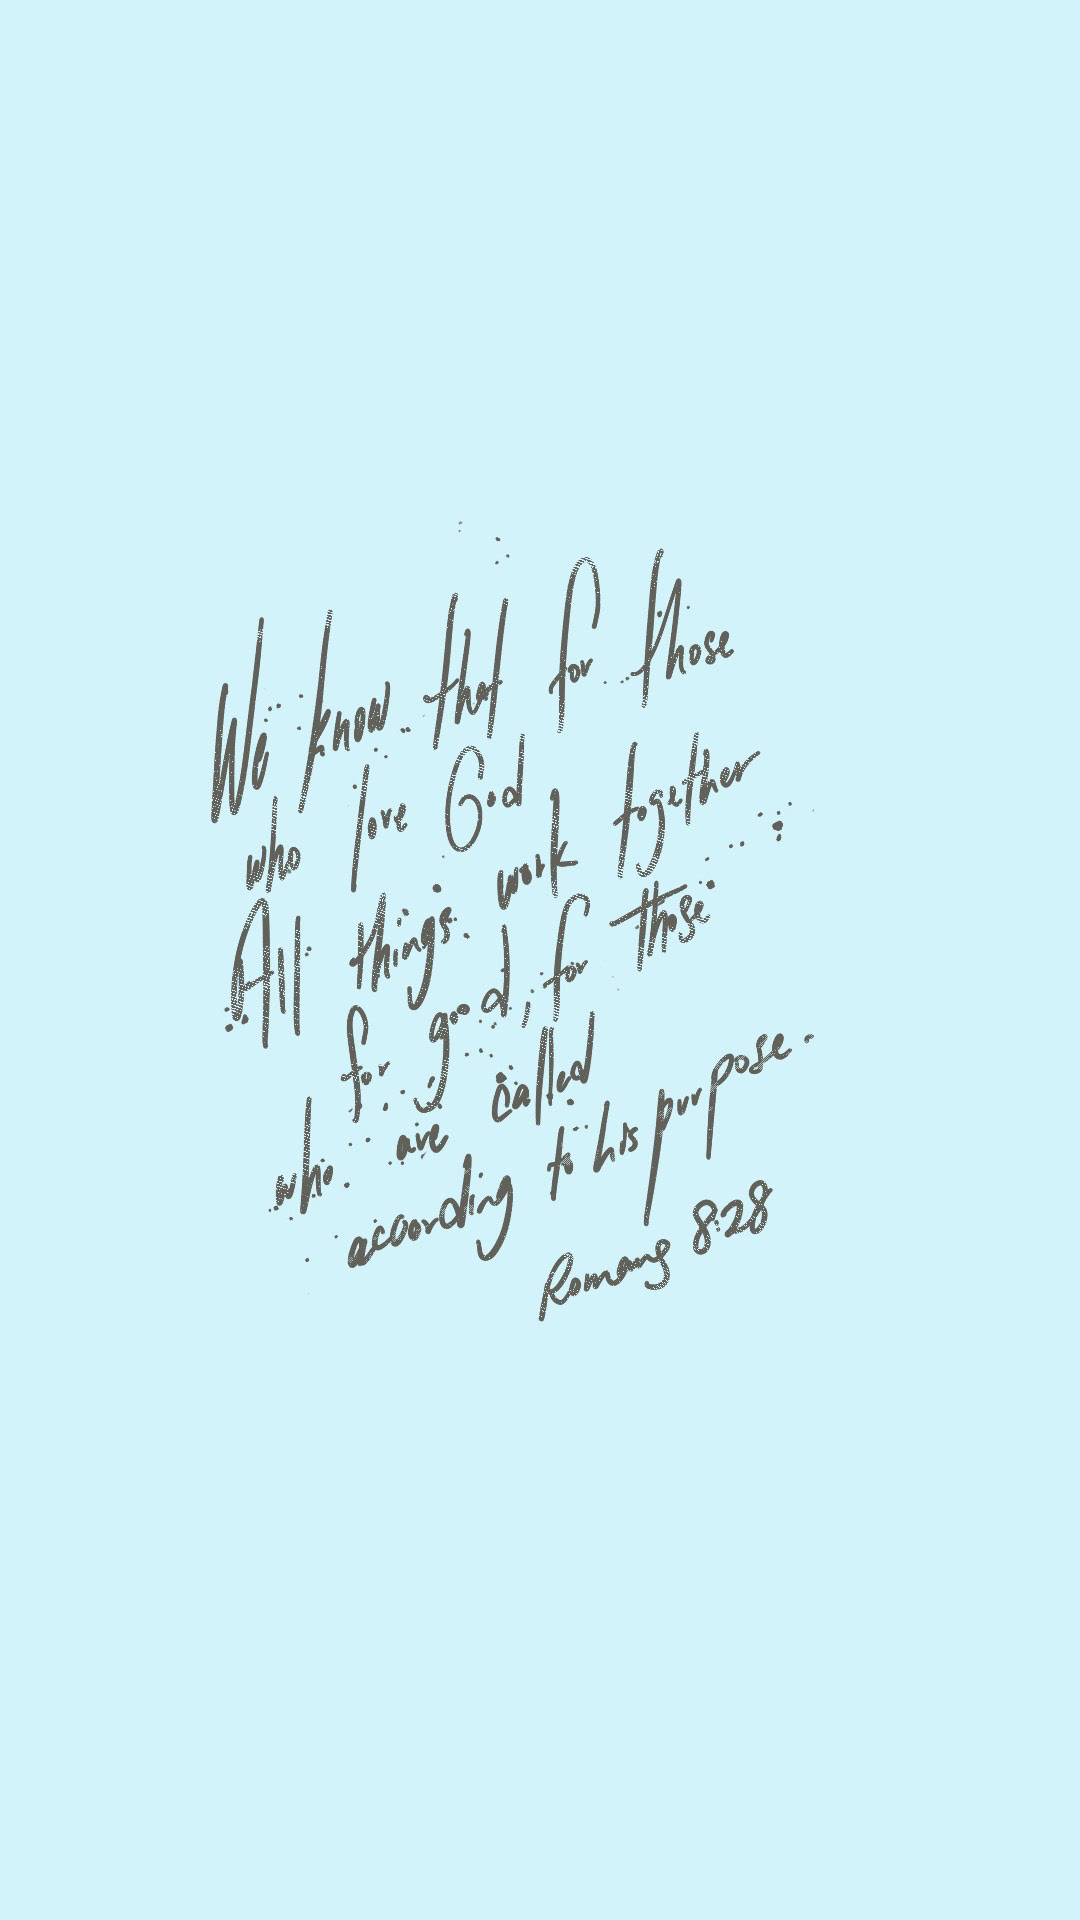 We know that for those
who love God
All things work together
for good, for those
who are called
according to his purpose.
Romans 8:28